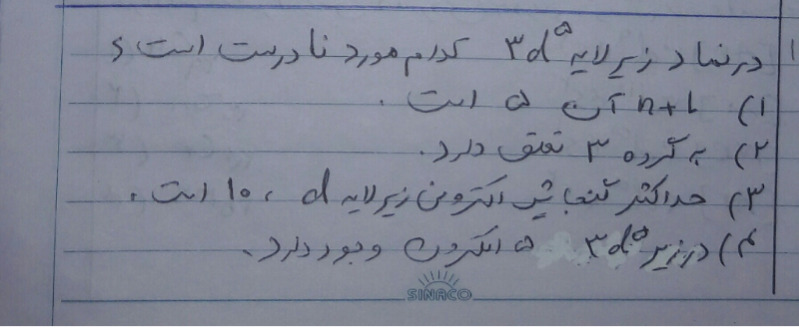 در نماد زیر لایه ۳d⁵ کدام مورد نادرست است؟
۱) n+l آن ۵ است.
۲) به گروه ۳ تعلق دارد.
۳) حداکثر گنجایش الکترونی زیرلایه d ، ۱۰ است.
۴) در زیر ۳d⁵ ۵ الکترون وجود دارد.
SINACO